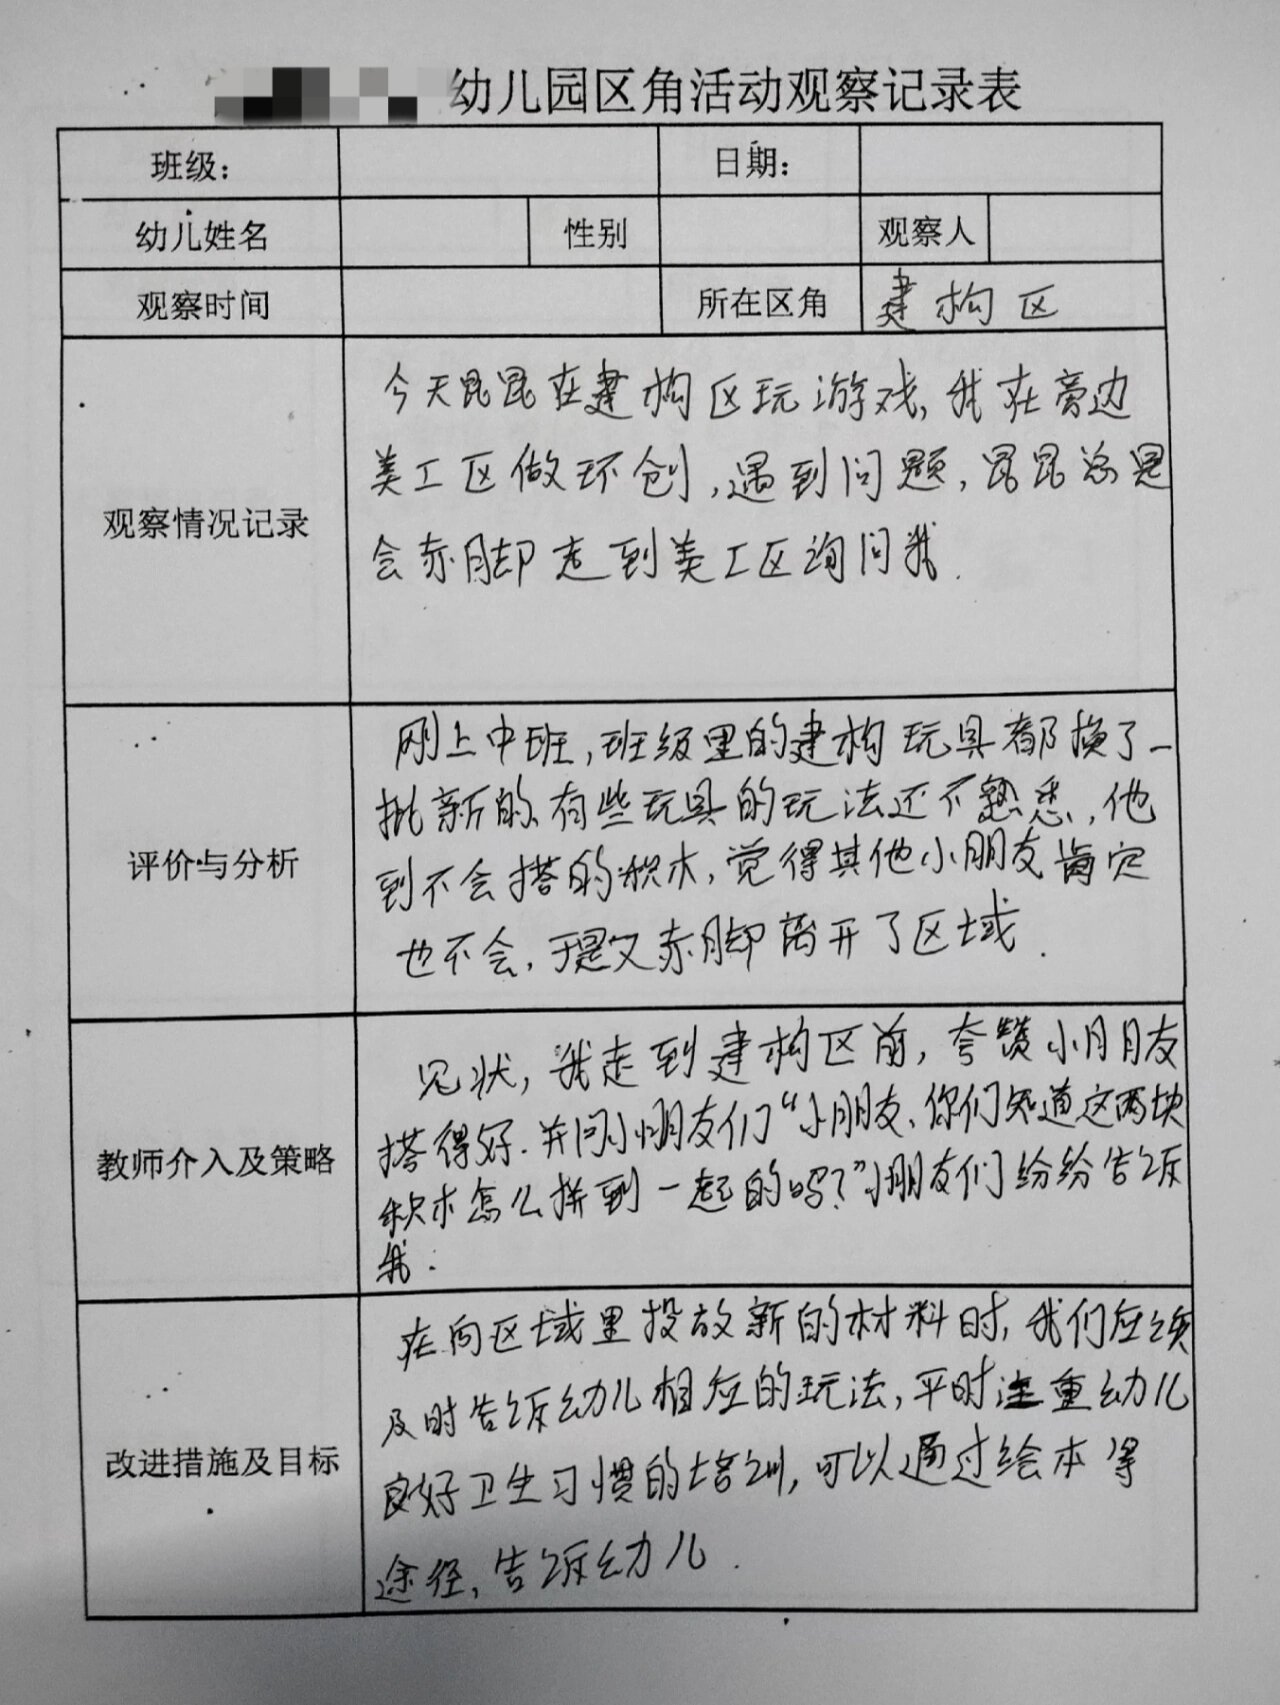 幼儿园区角活动观察记录表
班级： 日期：
幼儿姓名 性别 观察人
观察时间 所在区角 建构区
观察情况记录
今天昆昆在建构区玩游戏，我在旁边
美工区做环创，遇到问题，昆昆总是
会赤脚走到美工区询问我.
评价与分析
刚上中班，班级里的建构玩具都换了一
批新的、有些玩具的玩法还不熟悉，他
到不会搭的积木，觉得其他小朋友肯定
也不会，于是又赤脚离开了区域.
教师介入及策略
见状，我走到建构区前，夸赞小朋友
搭得好.并问小朋友们“小朋友、你们知道这两块
积木怎么拼到一起的吗？”小朋友们纷纷告诉
我.
改进措施及目标
在向区域里投放新的材料时，我们应须
及时告诉幼儿相应的玩法，平时注重幼儿
良好卫生习惯的培训，可以通过绘本等
途径，告诉幼儿.